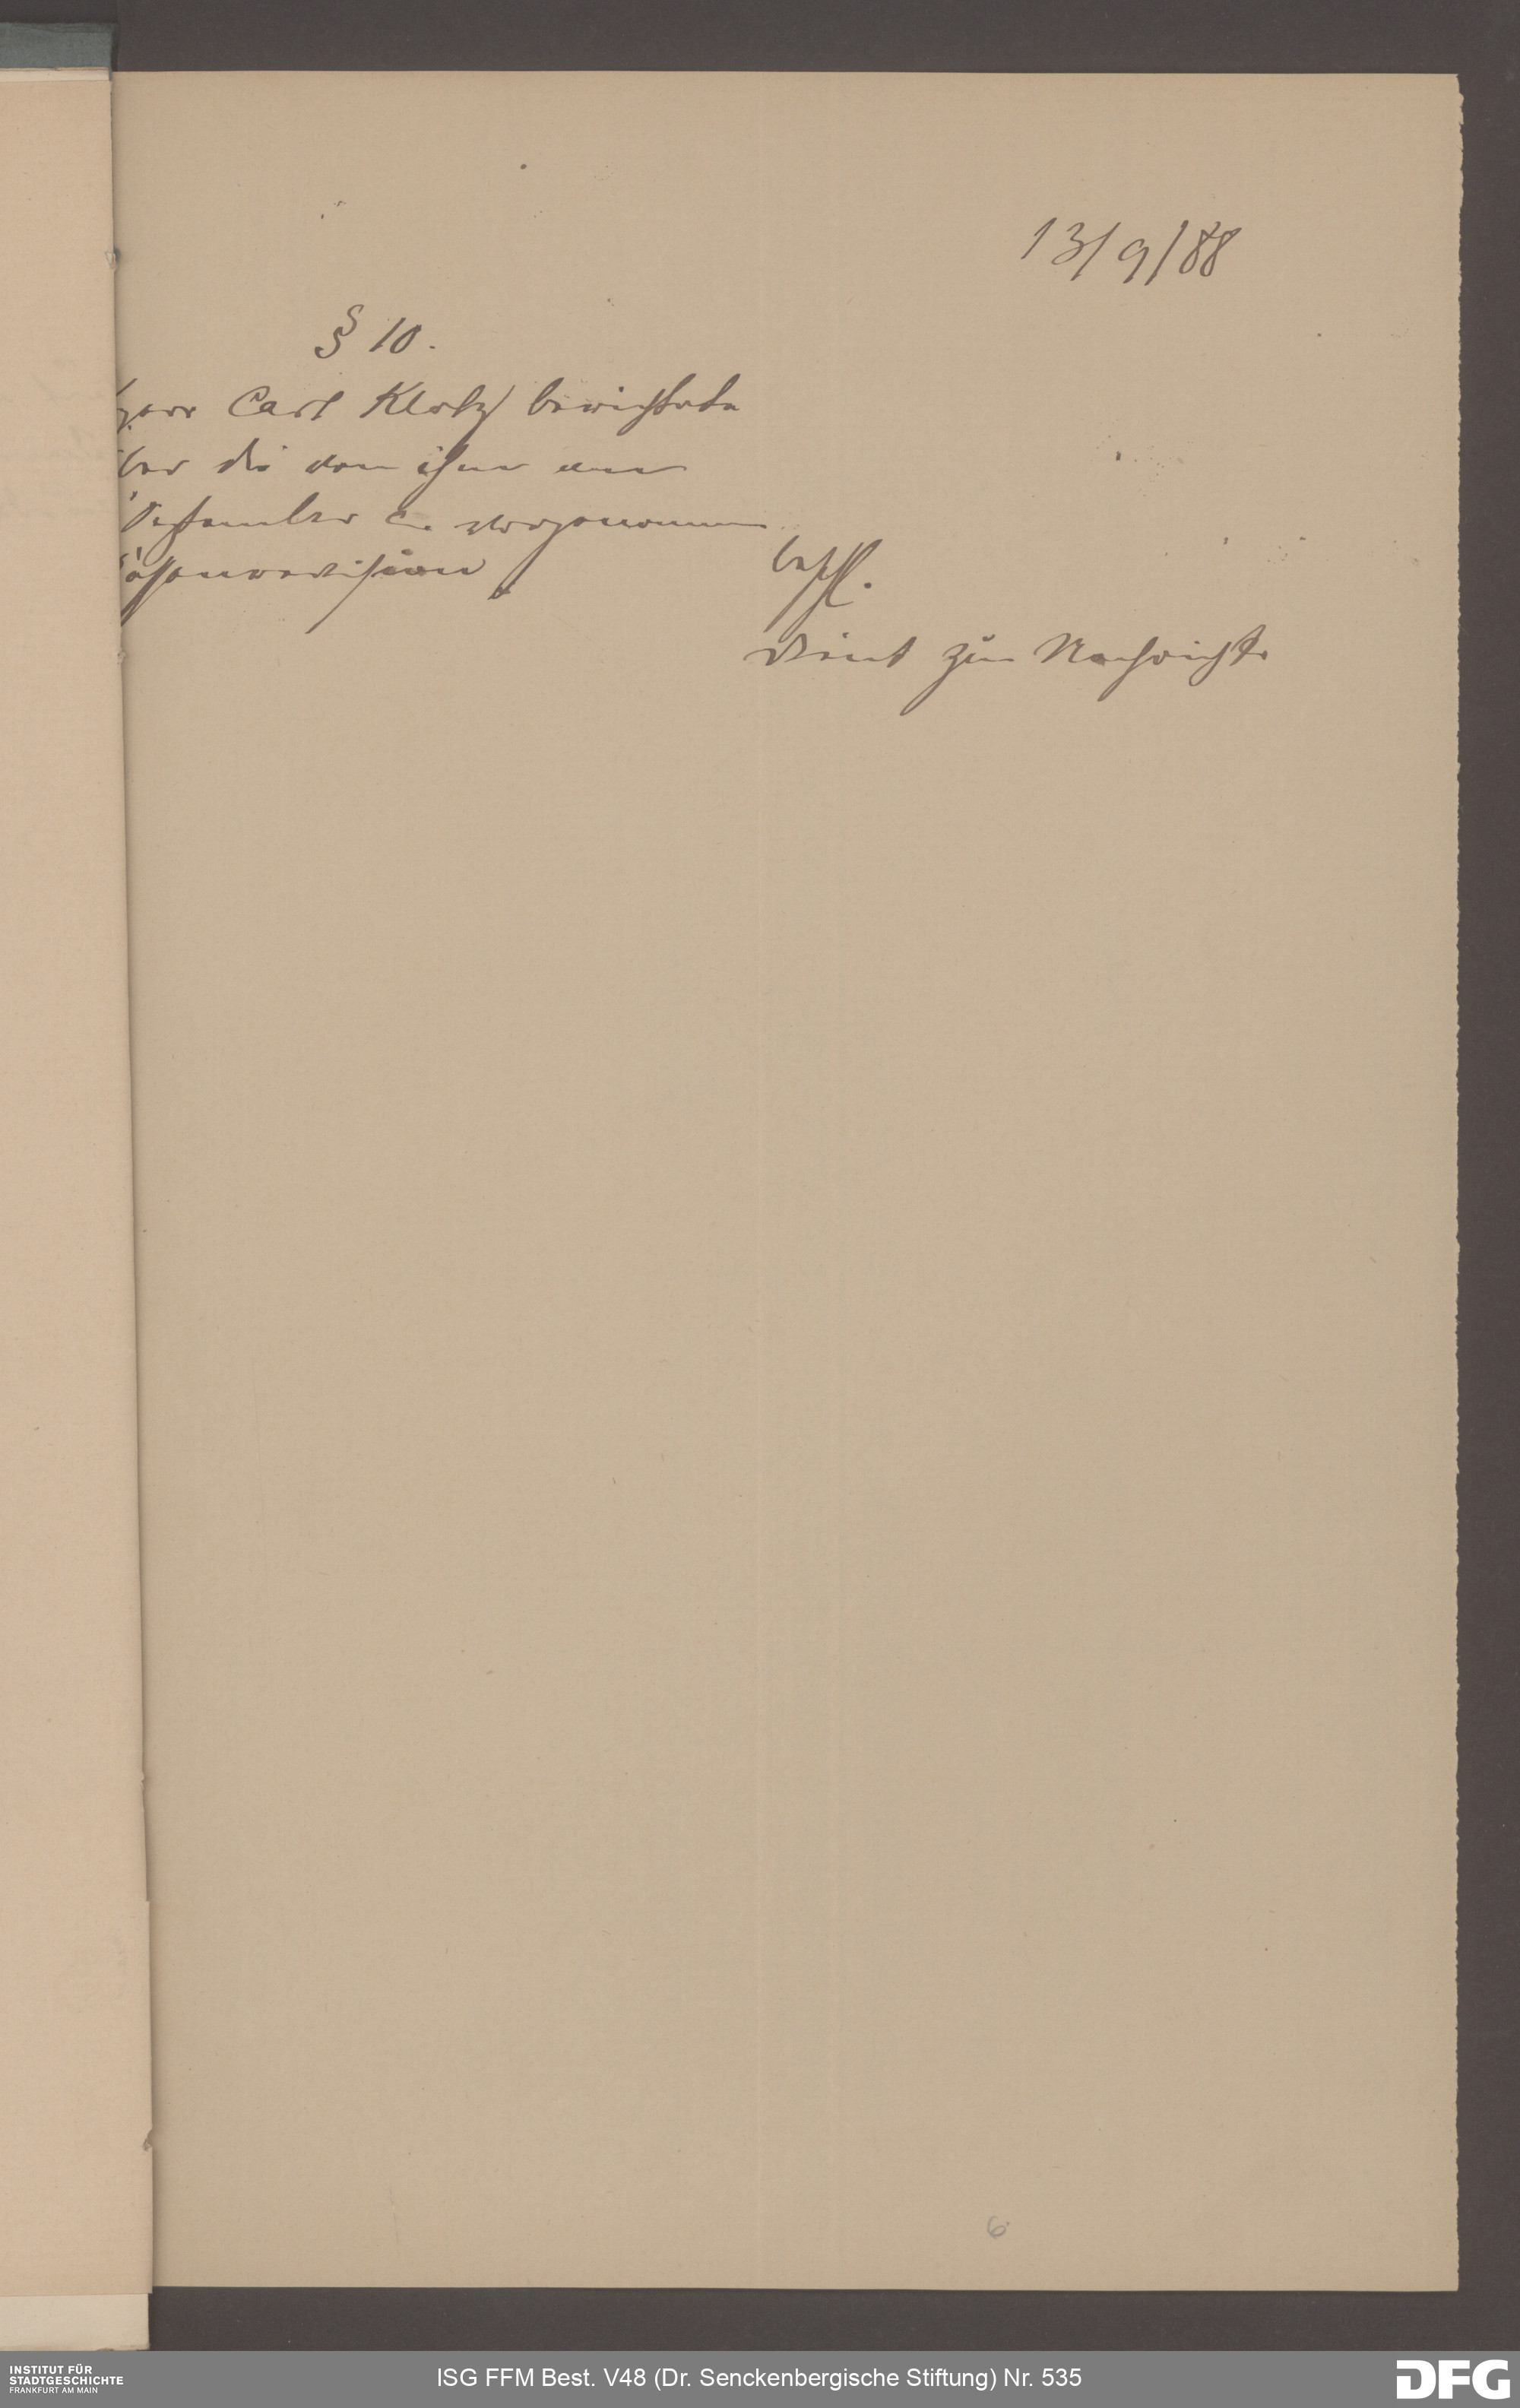 13/9/88
§ 10.
Herr Carl Klotz berichtete
über die von ihm am
September c. vorgenommene
Cassenrevision
beschl.
Dient zur Nachricht.
6
INSTITUT FÜR
STADTGESCHICHTE
FRANKFURT AM MAIN
ISG FFM Best. V48 (Dr. Senckenbergische Stiftung) Nr. 535
DFG